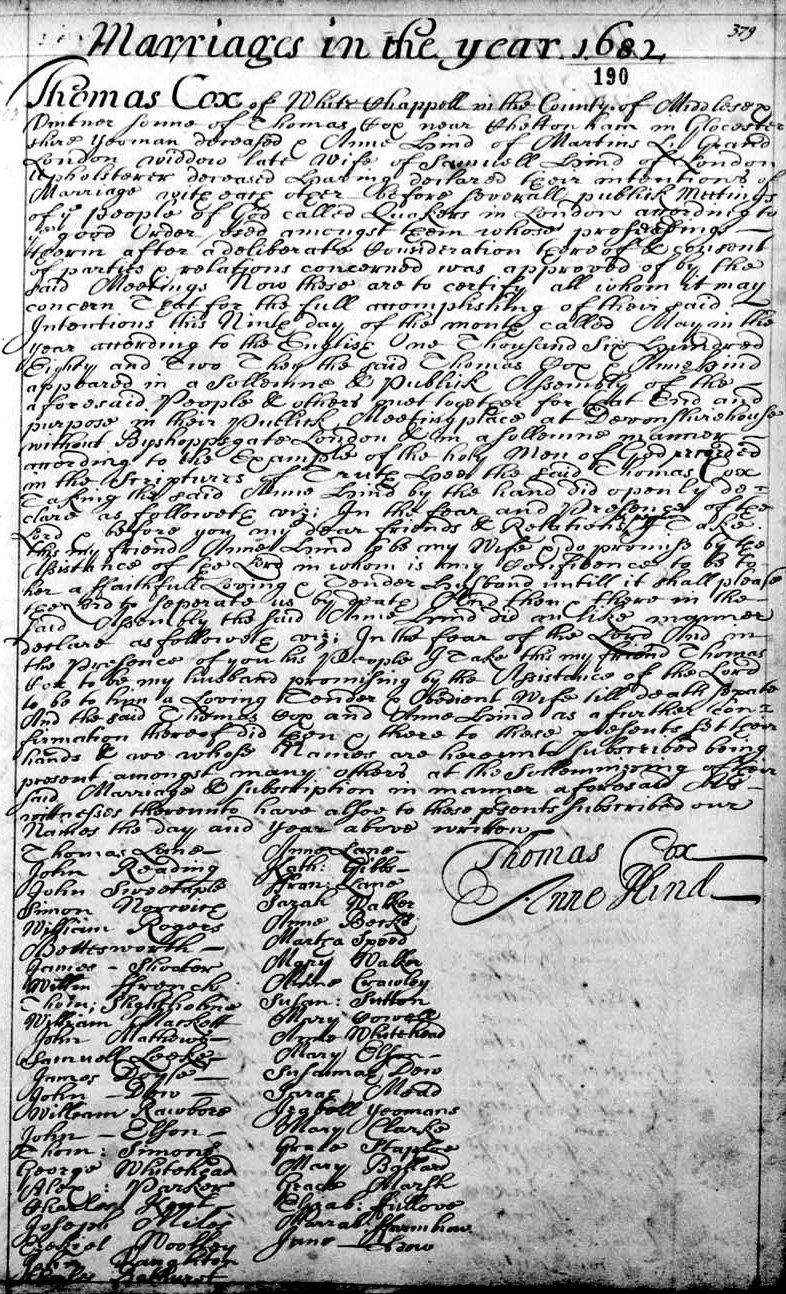 379
Marriages in the year 1682
190
Thomas Cox of White Chappell in the County of Middlesex
Vintner sonne of Thomas Cox near Cheltenham in Glocester
shire Yeoman deceased & Anne Hind of Martins Le Grand
London widdow late Wife of Samuell Hind of London
Upholsterer deceased Having declared their intentions of
Marriage with each other before severall publick Meetings
of ye people of God called Quakers in London according to
ye good Order used amongst them whose proceedings
therin after a deliberate Consideration thereof & consent
of parties & relations concerned was approved of by the
said Meetings Now these are to certify all whom it may
concern That for the full accomplishing of their said
Intentions this Ninth Day of the month called May in the
year according to the English One Thousand Six Hundred
Eighty and Two They the said Thomas Cox & Anne Hind
appeared in a Sollemne & Publick Assembly of the
aforesaid People & others met together for that End and
purpose in their Publick Meeting place at Devonshire house
without Byshoppsgate London & in a sollemne manner
according to the Example of the holy Men of God recorded
in the Scriptures of Truth Hee the said Thomas Cox
Taking the said Anne Hind by the hand did openly de=
clare as followeth viz: In the fear and Presence of the
Lord & before you my dear friends & Relations I Take
this my friend Anne Hind to be my Wife & do promise by the
Assistance of the Lord in whom is my Confidence to be to
her a faithfull Loving & Tender Husband untill it shall please
the Lord to seperate us by death And then & there in the
said Assembly the said Anne Hind did in like manner
declare as followeth viz: In the fear of the Lord And in
the Presence of you his People I Take this my friend Thomas
Cox to be my husband promising by the Assistance of the Lord
to be to him a Loving Tender & Obedient Wife till death sepate
And the said Thomas Cox and Anne Hind as a further con=
firmation thereof did then & there to these presents set their
hands & we whose Names are hereunto subscribed being
present amongst many others at the Sollemnizing of their
said Marriage & Subscription in manner aforesaid As
witnesses thereunto have alsoe to these psents subscribed our
Names the day and year above written
Thomas Cox
Anne Hind
Thomas Lane
John Reading
John Sweetaple
Simon Norwich
William Rogers
Bettesworth
James Shooter
Willm ffrench
Thom:
William Mackett
John Mathews
Samuell Lee
James Doyse
John Dew
William Rawbone
John Elson
Thom: Simons
George Whitehead
Alex: Parker
Charles Kent
Joseph Miles
Ezekiel Woolley
John Vaughton
Charles Bathurst
Anne Lane
Kath: Gibbs
ffran: Lane
Sarah Walker
Anne Becke
Martha Speed
Mary Walker
Anne Crawley
Susan: Sutton
Mary Cowell
Anne Whitehead
Mary Elson
Susanna Dew
Sarah Mead
Izabell Yeomans
Mary Clarke
Grace Staploe
Mary Ballard
Grace Marsh
Elizab: ffullove
Marrab: ffarmborow
Jane Low